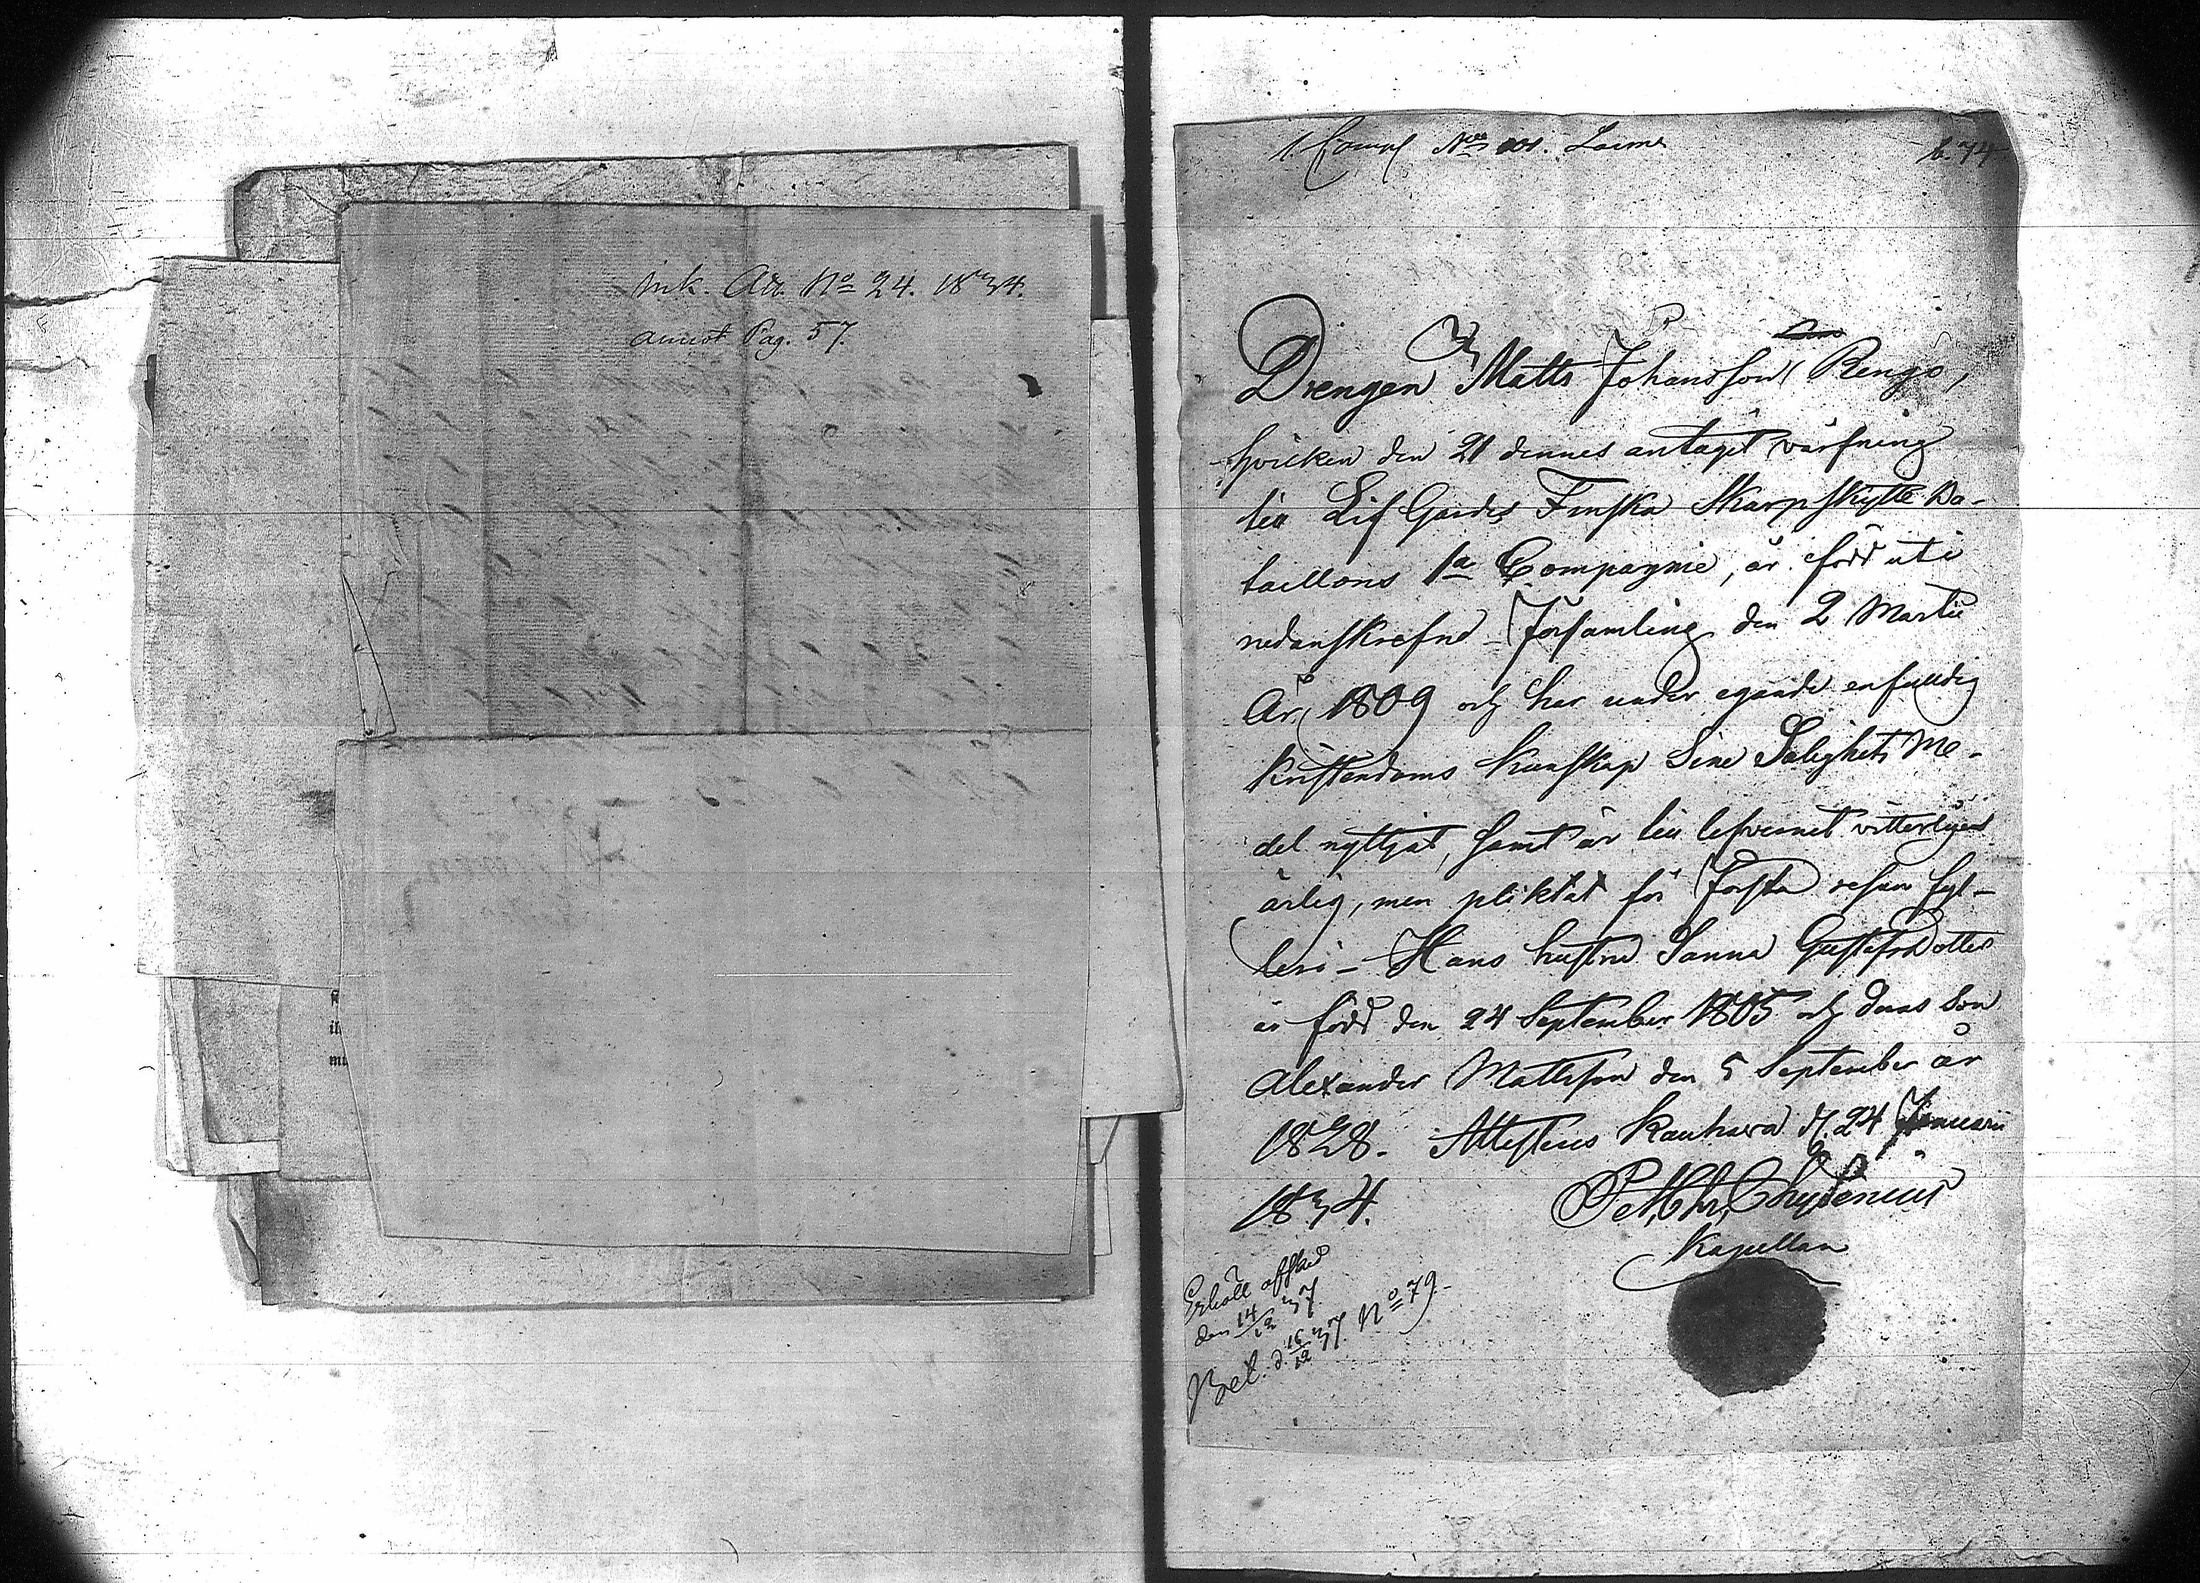 Ink. Act. No 24. 1834.
annot Pag. 57.
1. Comp No 101. Laine
b. 74
Drengen Matts Johansson Rengo,
hvilken den 21 dennes antagit värfning
till Lif Gardes Finska Skarpskytte Ba-
taillons 1a Compagnie, är född uti
nedanskrefne Församling den 2 Martii
År 1809 och har under egande enfalldig
kristendoms kunskap Sine Salighets Me-
del nyttjat, samt är till lefvernet vitterligen
ärlig, men pliktat för Första resan fyl-
leri - Hans hustru Sanna Gustafsdotter
är född den 24 September 1805 och deras Son
Alexander Mattsson den 5 September år
1828. Attesteras Kauhava d. 24 Januarii
1834. Pet. Chr. Chydenius
Kapellan
Erhöll afsked
den 14/12 37.
Bet. d. 16/12 37. No 79.